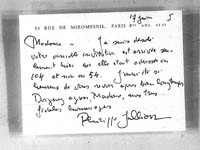 17 juin 5
54 RUE DE MIROMESNIL, PARIS 8e
Madame - Je suis désolé
votre aimable invitation est arrivée
hier car elle était adressée au
104 et non au 54. J'aurais été
heureux de vous revoir après
Madame, mes très
fidèles hommages
Philippe Jullian